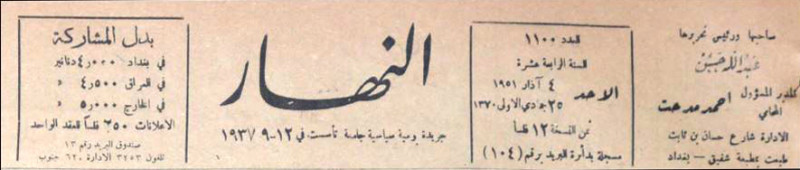 صاحبها ورئيس تحريرها
عبدالله حسن
المدير المسؤول
المحامي
احمد مدحت
الادارة شارع حسان بن ثابت
طبعت بمطبعة شفيق - بغداد
العدد ١١٠٠
السنة الرابعة عشرة
الاحد
٤ آذار ١٩٥١
٢٥ جمادي الاولى ١٣٧٠
ثمن النسخة ١٢ فلساً
مسجلة بدأرة البريد برقم (١٠٤)
النهار
جريدة يومية سياسية جامعة تأسست في ١٢-٩-١٩٣٧
بدل المشاركة
في بغداد ٤٫٠٠٠ دنانير
في العراق ٤٫٥٠٠ «
في الخارج ٥٫٠٠٠ «
الاعلانات ٢٥٠ فلساً للعقد الواحد
صندوق البريد رقم ١٣
تلفون ٣٤٥٣ الادارة ٦٢٠ جنوب